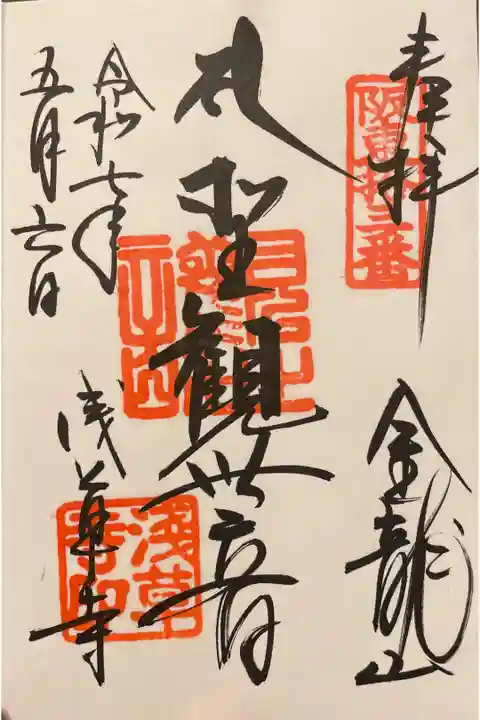 奉拝
阪東拾三番
金龍山
聖観世音
令和七年
五月六日
浅草寺
淺草
寺印